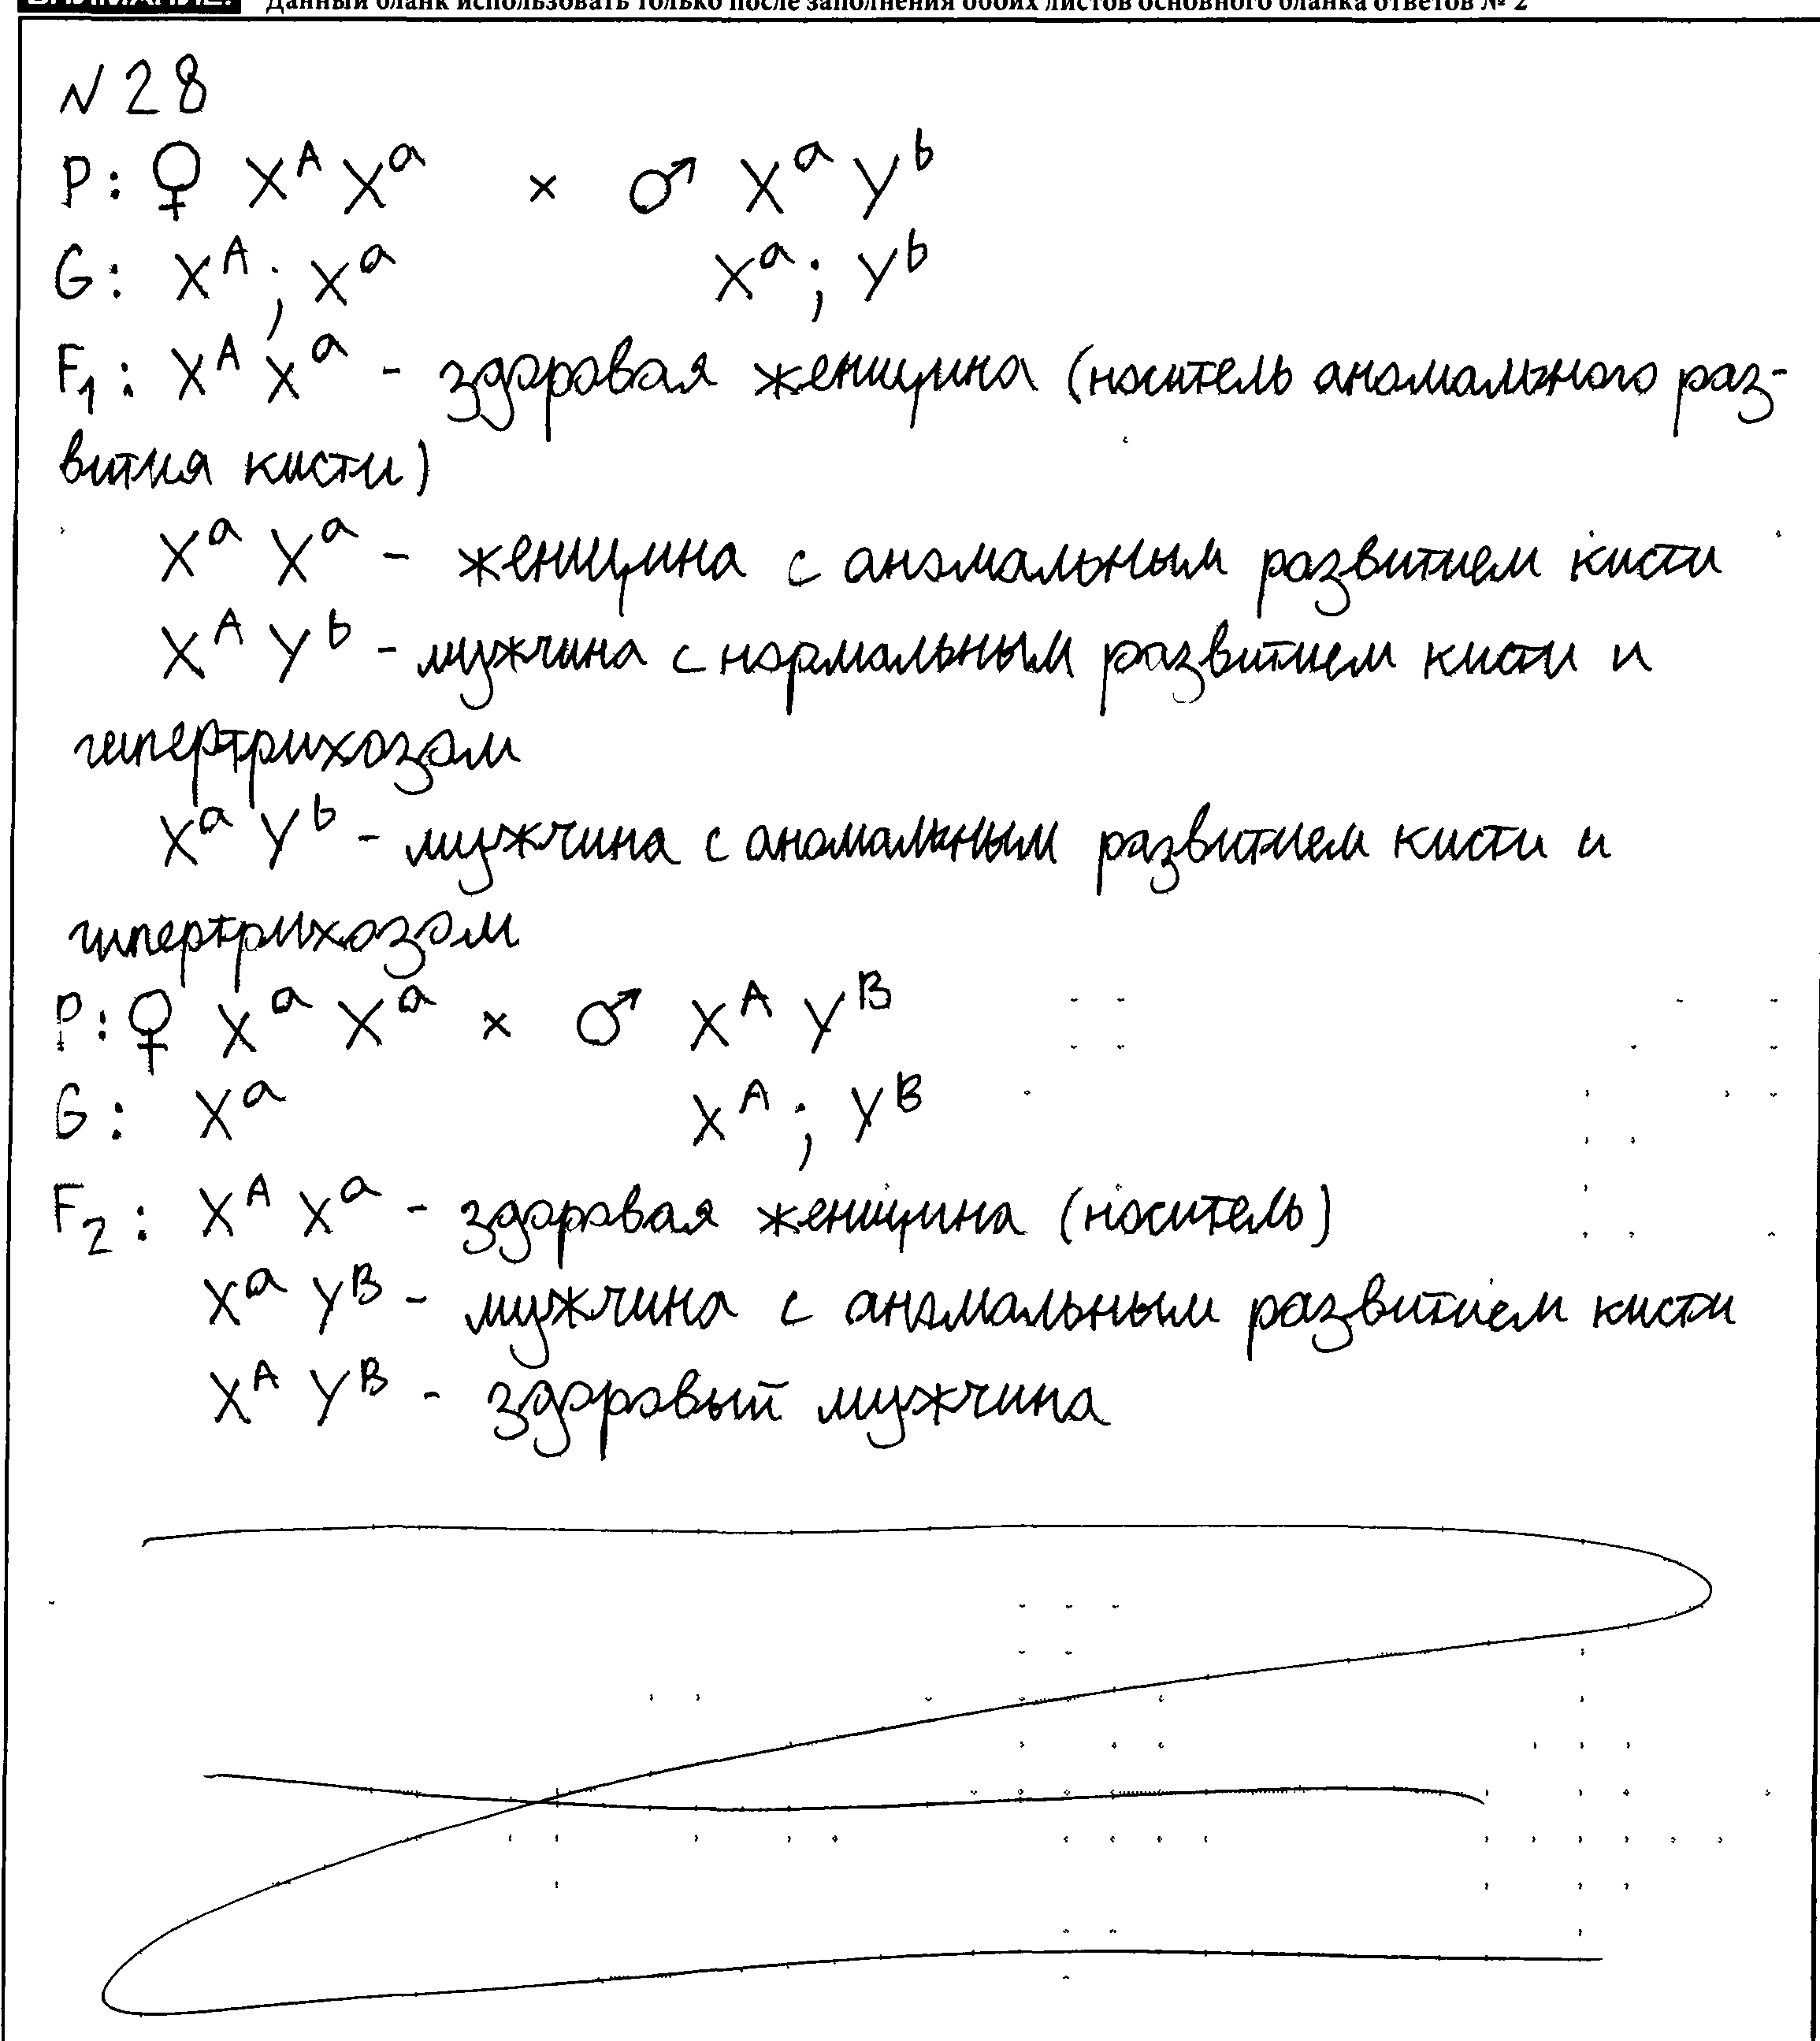 Данный бланк использовать только после заполнения обоих листов основного бланка ответов № 2
N 28
P: ♀ Xᴬ Xᵃ × ♂ Xᵃ Yᵇ
G: Xᴬ; Xᵃ Xᵃ; Yᵇ
F₁: Xᴬ Xᵃ - здоровая женщина (носитель аномального раз-
вития кисти)
Xᵃ Xᵃ - женщина с аномальным развитием кисти
Xᴬ Yᵇ - мужчина с нормальным развитием кисти и
гипертрихозом
Xᵃ Yᵇ - мужчина с аномальным развитием кисти и
гипертрихозом
P: ♀ Xᵃ Xᵃ × ♂ Xᴬ Yᴮ
G: Xᵃ Xᴬ; Yᴮ
F₂: Xᴬ Xᵃ - здоровая женщина (носитель)
Xᵃ Yᴮ - мужчина с аномальным развитием кисти
Xᴬ Yᴮ - здоровый мужчина